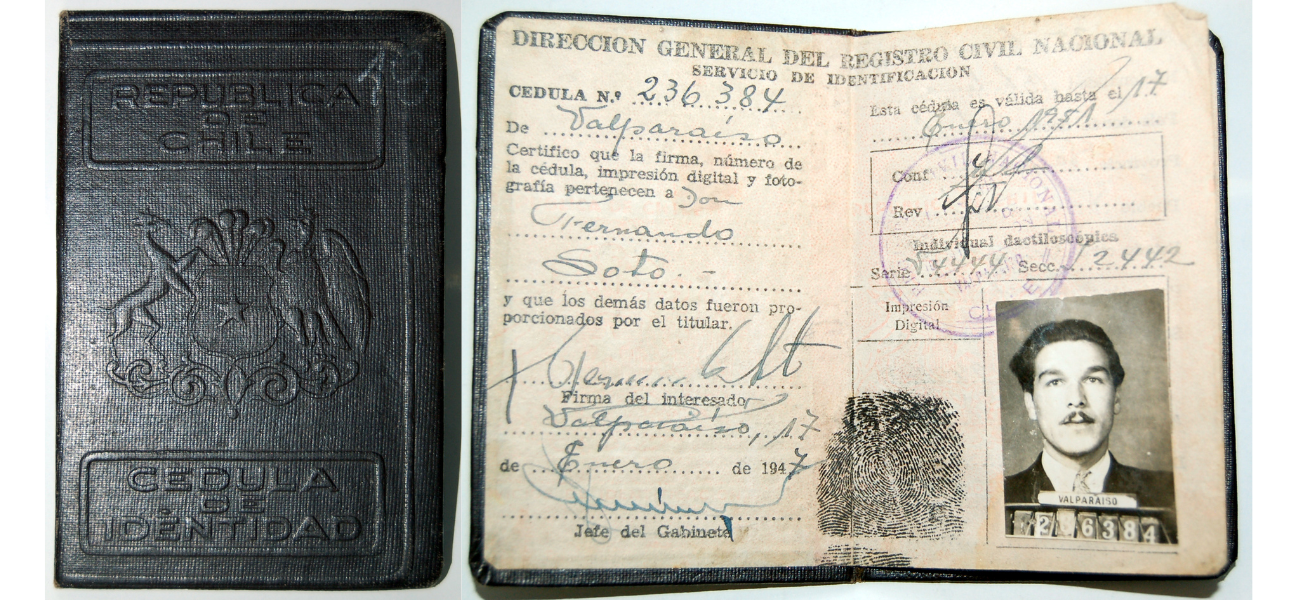 REPUBLICA
DE
CHILE
CEDULA
DE
IDENTIDAD
DIRECCION GENERAL DEL REGISTRO CIVIL NACIONAL
SERVICIO DE IDENTIFICACION
CEDULA N.º 236.384
De Valparaíso
Certifico que la firma, número de
la cédula, impresión digital y foto-
grafía pertenecen a Don
Fernando
Soto.-
y que los demás datos fueron pro-
porcionados por el titular.
Firma del interesado
Valparaíso, 17
de Enero de 1947
Jefe del Gabinete
Esta cédula es válida hasta el 17
Enero 1951
Conf
Rev
Individual dactiloscópica
Serie V4444 Secc. 12442
Impresión
Digital
VALPARAISO
236384